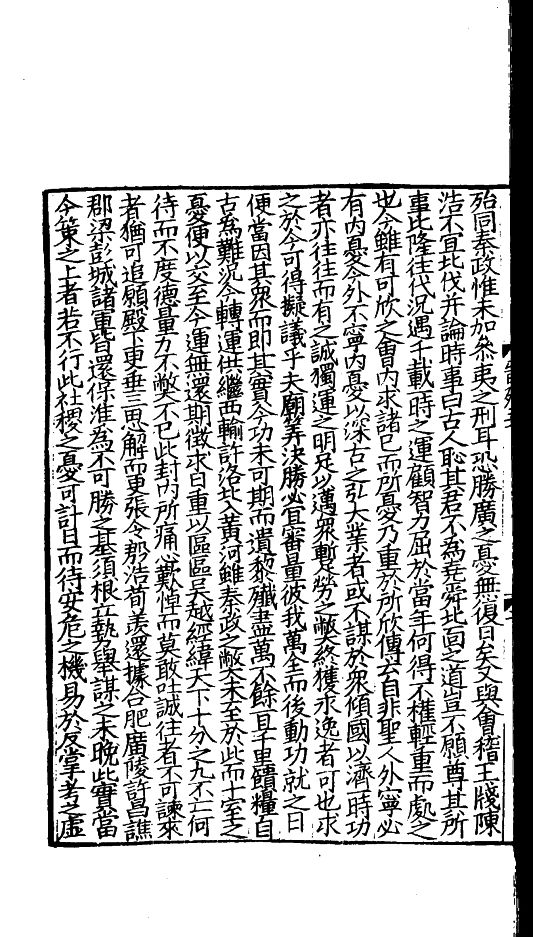 殆同秦政惟未加參夷之刑耳恐勝廣之憂無復日矣又與會稽王牋陳
浩不宜北伐并論時事曰古人恥其君不為堯舜北面之道豈不願尊其所
事比隆往代況遇千載一時之運顧智力屈於當年何得不權輕重而處之
也今雖有可欣之會内求諸已而所憂乃重於所欣傳云自非聖人外寧必
有内憂今外不寧内憂以深古之弘大業者或不謀於衆傾國以濟一時功
者亦往往而有之誠獨運之明足以邁衆暫勞之弊終獲永逸者可也求
之於今可得擬議乎夫廟筭決勝必宜審量彼我萬全而後動功就之日
便當因其衆而即其實今功未可期而遺黎殲盡萬不餘一且千里饋糧自
古為難況今轉運供繼西輸許洛北入黃河雖秦政之弊未至於此而十室之
憂便以交至今運無還期徵求日重以區區吳越經緯天下十分之九不亡何
待而不度德量力不弊不已此封内所痛心歎悼而莫敢吐誠往者不可諫來
者猶可追願殿下更垂三思解而更張令郄浩荀羨還據合肥廣陵許昌譙
郡梁彭城諸軍皆還保淮為不可勝之基須根立埶舉謀之未晚此實當
今策之上者若不行此社稷之憂可計日而待安危之機易於反掌考之虛